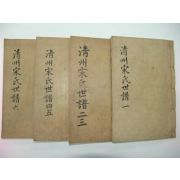 清州宋氏世譜一
清州宋氏世譜二三
清州宋氏世譜四五
清州宋氏世譜六